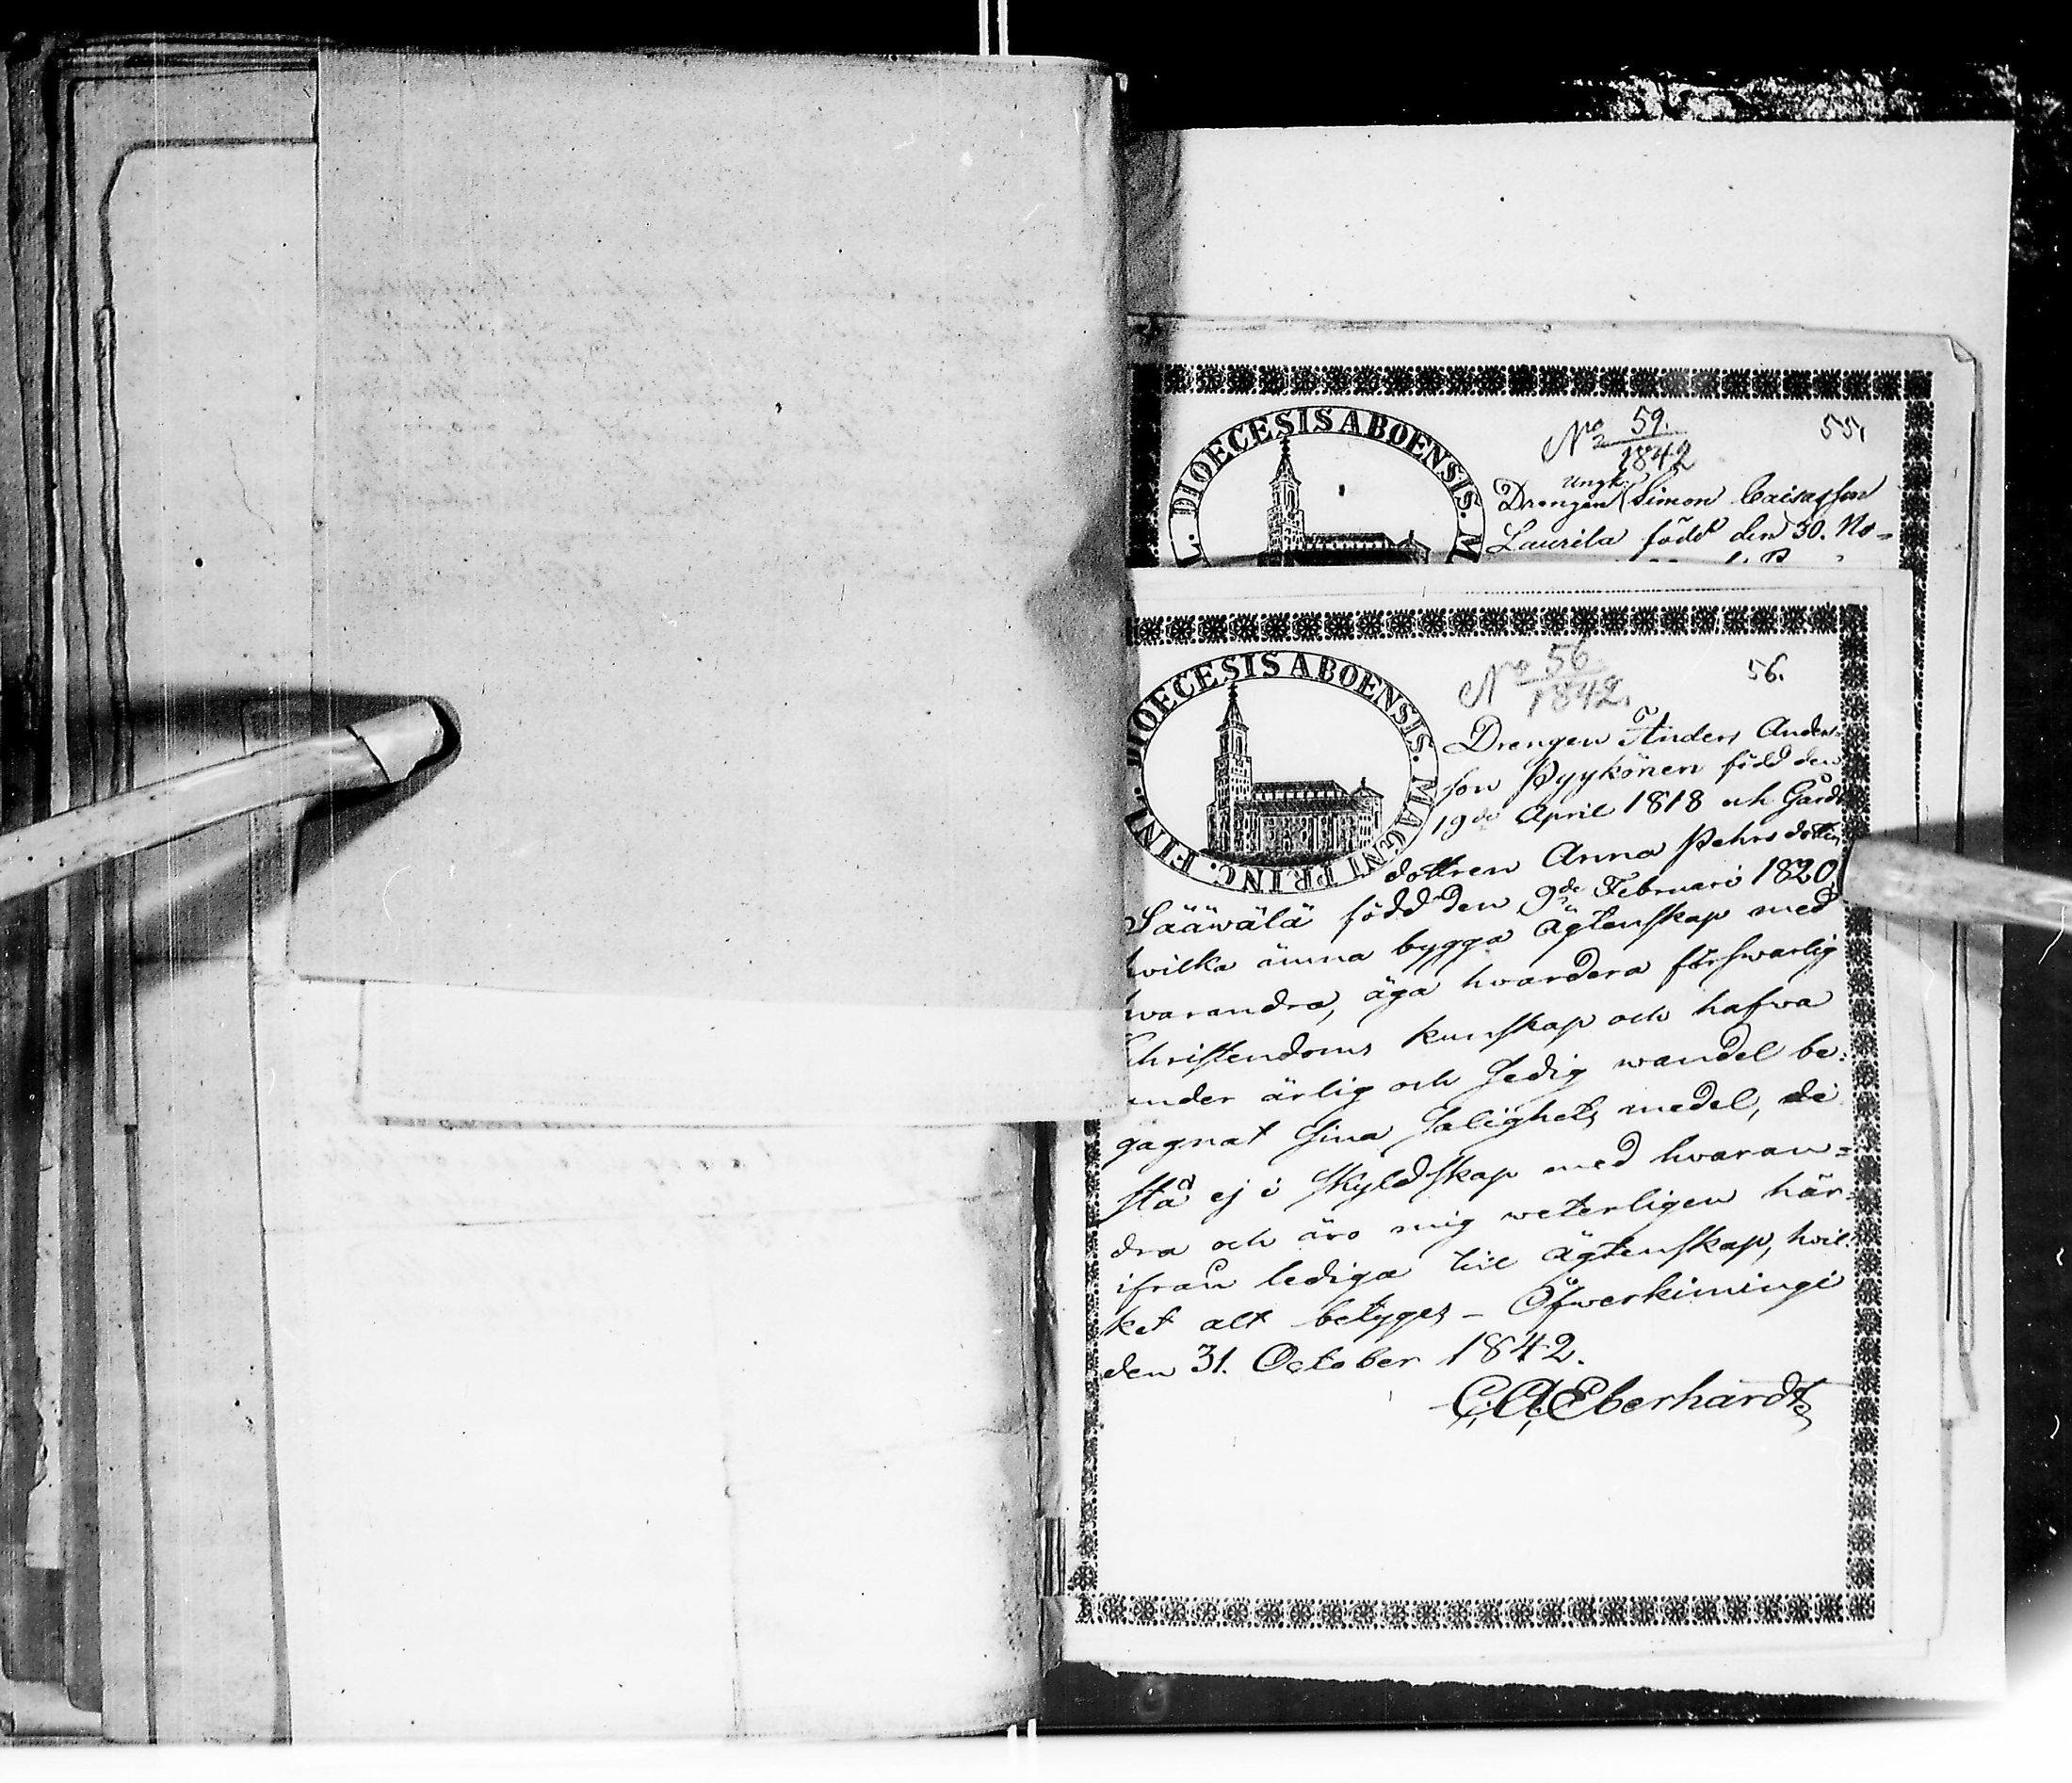 DIOECESIS ABOENSIS. M
No 59.
1842
55,
Ungk.
Drengen Simon Caisasson
Laurila född den 30. No=
DIOECESIS ABOENSIS. MAGNI PRINC. FINL.
No 56
1842.
56.
Drengen Anders Anders
son Pyykönen född den
19de April 1818 och Gårds
dottren Anna Pehrsdotter
Sääwälä född den 9de Februari 1820,
hvilka ämna bygga ägtenskap med
hvarandra, äga hvardera förswarlig
Christendoms kunskap och hafwa
under ärlig och sedig wandel be=
gagnat sina salighets medel, de
stå ej i skyldskap med hvaran=
dra och äro mig weterligen här=
ifrån lediga till ägtenskap, hvil=
ket alt betyges – Öfwerkimingi
den 31. October 1842.
C. A. Eberhardt